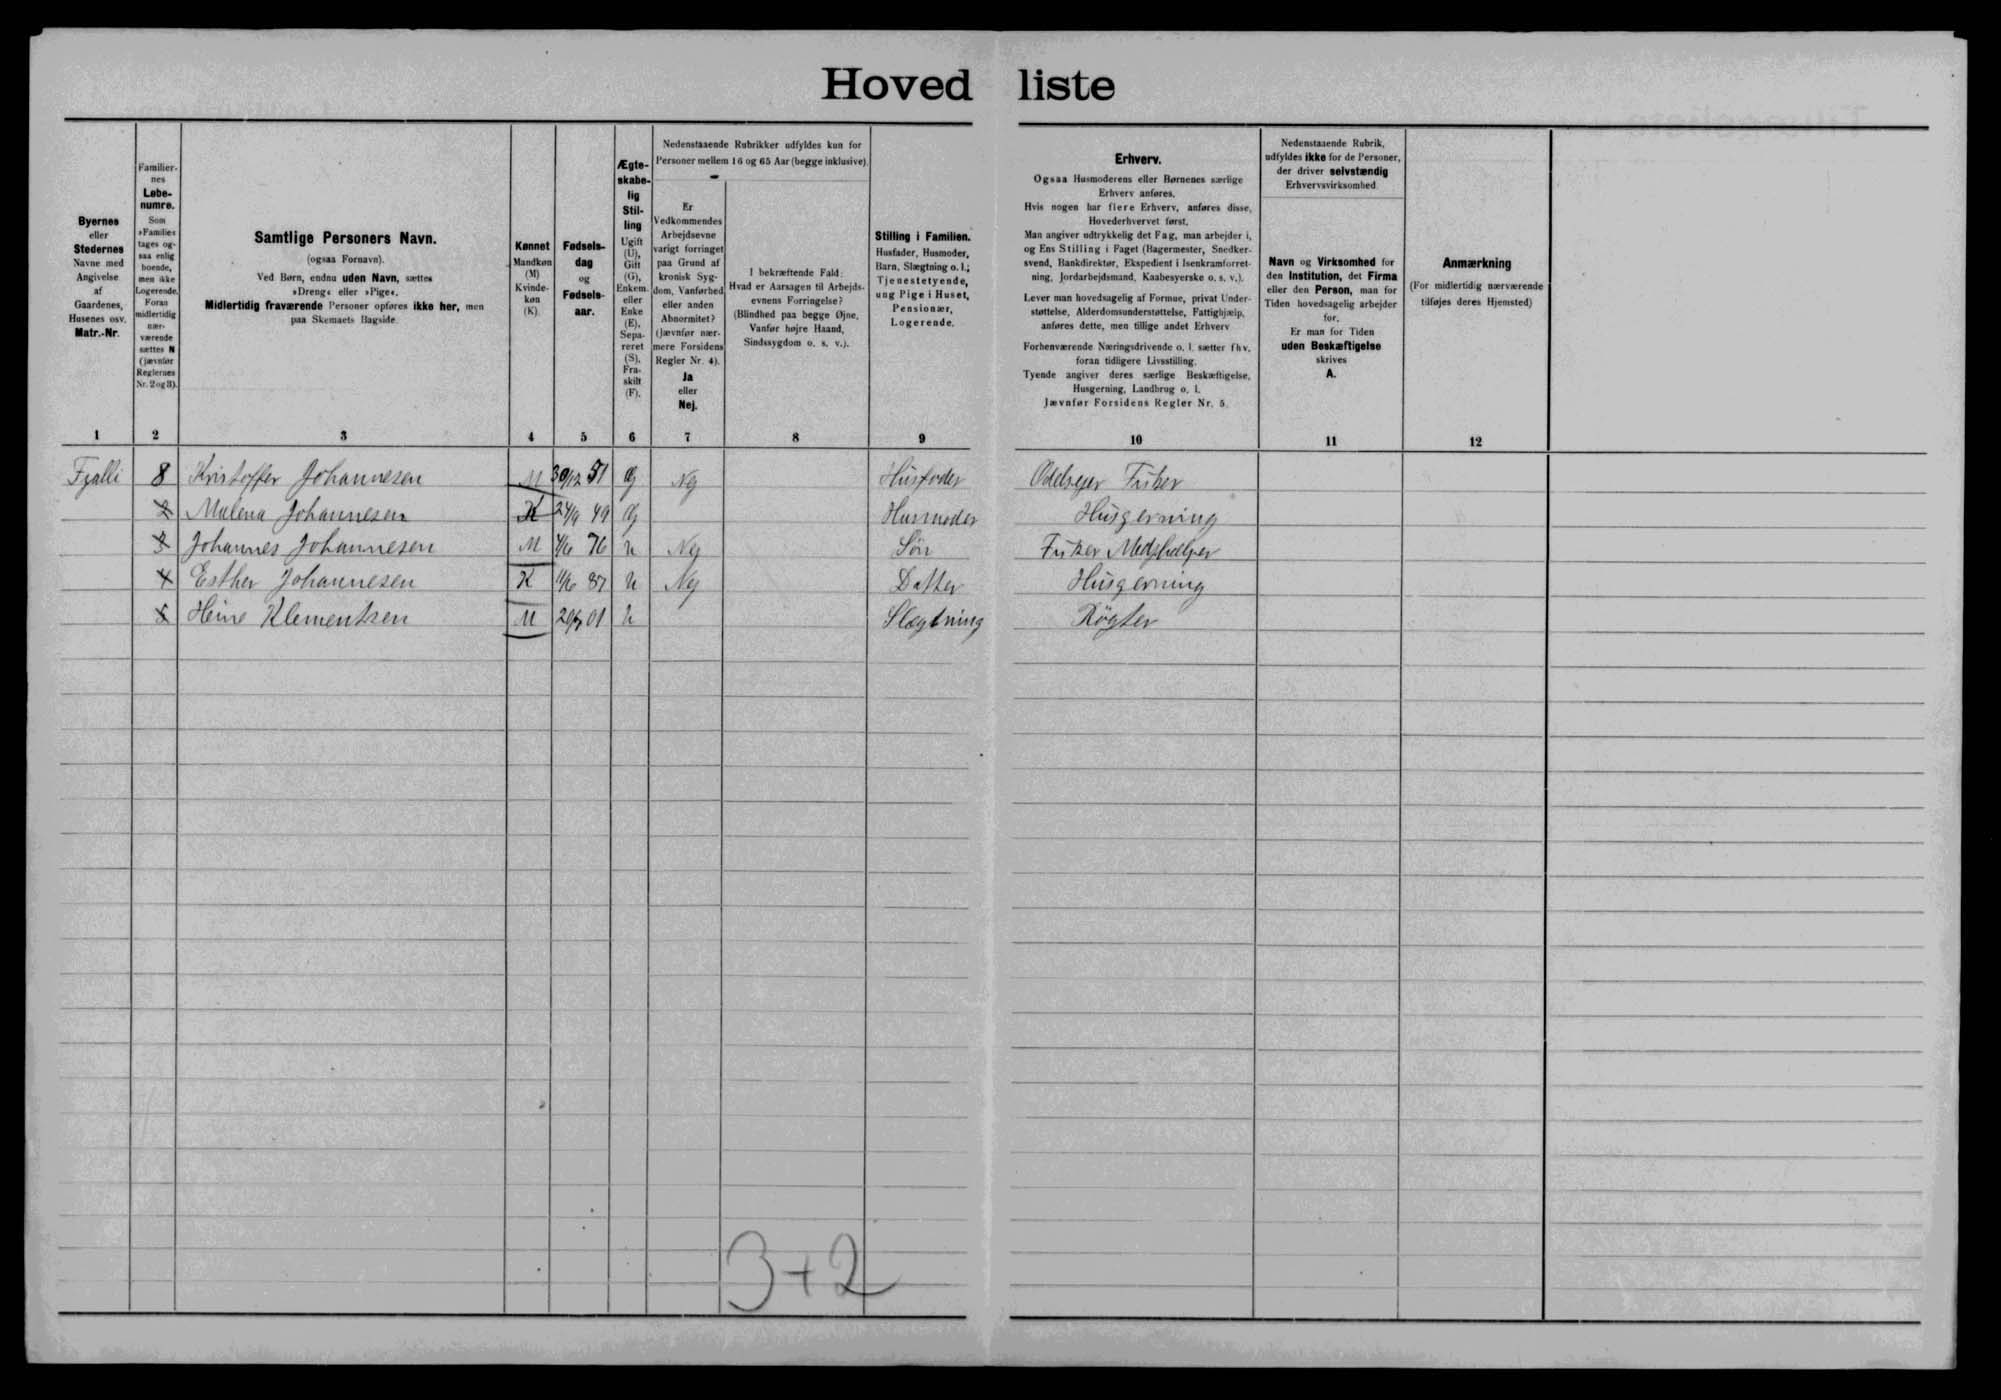 Hoved liste
Byernes
eller
Stedernes
Navne med
Angivelse
af
Gaardenes,
Husenes osv.
Matr.-Nr.
Familier-
nes
Løbe-
numre.
Som
»Familie«
tages og-
saa enlig
boende,
men ikke
Logerende.
Foran
midlertidig
nær-
værende
sættes N
(jævnfør
Reglernes
Nr. 2 og 3).
Samtlige Personers Navn.
(ogsaa Fornavn).
Ved Børn, endnu uden Navn, sættes
»Dreng« eller »Pige«.
Midlertidig fraværende Personer opføres ikke her, men
paa Skemaets Bagside.
Kønnet
Mandkøn
(M)
Kvinde-
køn
(K).
Fødsels-
dag
og
Fødsels-
aar.
Ægte-
skabe-
lig
Stil-
ling
Ugift
(U),
Gift
(G),
Enkem.
eller
Enke
(E),
Sepa-
reret
(S),
Fra-
skilt
(F).
Nedenstaaende Rubrikker udfyldes kun for
Personer mellem 16 og 65 Aar (begge inklusive).
Er
Vedkommendes
Arbejdsevne
varigt forringet
paa Grund af
kronisk Syg-
dom, Vanførhed
eller anden
Abnormitet?
(Jævnfør nær-
mere Forsidens
Regler Nr. 4).
Ja
eller
Nej.
I bekræftende Fald:
Hvad er Aarsagen til Arbejds-
evnens Forringelse?
(Blindhed paa begge Øjne,
Vanfør højre Haand,
Sindssygdom o. s. v.).
Stilling i Familien.
Husfader, Husmoder,
Barn, Slægtning o. l.;
Tjenestetyende,
ung Pige i Huset,
Pensionær,
Logerende.
Erhverv.
Ogsaa Husmoderens eller Børnenes særlige
Erhverv anføres.
Hvis nogen har flere Erhverv, anføres disse,
Hovederhvervet først.
Man angiver udtrykkelig det Fag, man arbejder i,
og Ens Stilling i Faget (Bagermester, Snedker-
svend, Bankdirektør, Ekspedient i Isenkramforret-
ning, Jordarbejdsmand, Kaabesyerske o. s. v.).
Lever man hovedsagelig af Formue, privat Under-
støttelse, Alderdomsunderstøttelse, Fattighjælp,
anføres dette, men tillige andet Erhverv
Forhenværende Næringsdrivende o. l. sætter fhv.
foran tidligere Livsstilling.
Tyende angiver deres særlige Beskæftigelse,
Husgerning, Landbrug o. l.
Jævnfør Forsidens Regler Nr. 5.
Nedenstaaende Rubrik,
udfyldes ikke for de Personer,
der driver selvstændig
Erhvervsvirksomhed.
Navn og Virksomhed for
den Institution, det Firma
eller den Person, man for
Tiden hovedsagelig arbejder
for.
Er man for Tiden
uden Beskæftigelse
skrives
A.
Anmærkning
(For midlertidig nærværende
tilføjes deres Hjemsted)
1 2 3 4 5 6 7 8 9 10 11 12
Fjalli 8 Kristoffer Johannesen M 30/12 51 G Nej Husfader Odelsejer Fisker
2 Malena Johannesen K 24/9 49 G Husmoder Husgerning
3 Johannes Johannesen M 4/6 76 U Nej Søn Fisker Medhjælper
4 Esther Johannesen K 11/6 87 U Nej Datter Husgerning
5 Heine Klementsen M 01 U Slægtning Røgter
3+2